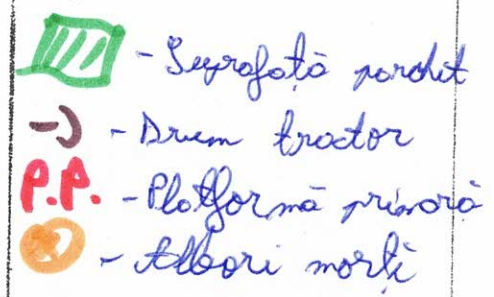 - Suprafață parchet
- Drum tractor
P.P. - Platformă primară
- Arbori morți